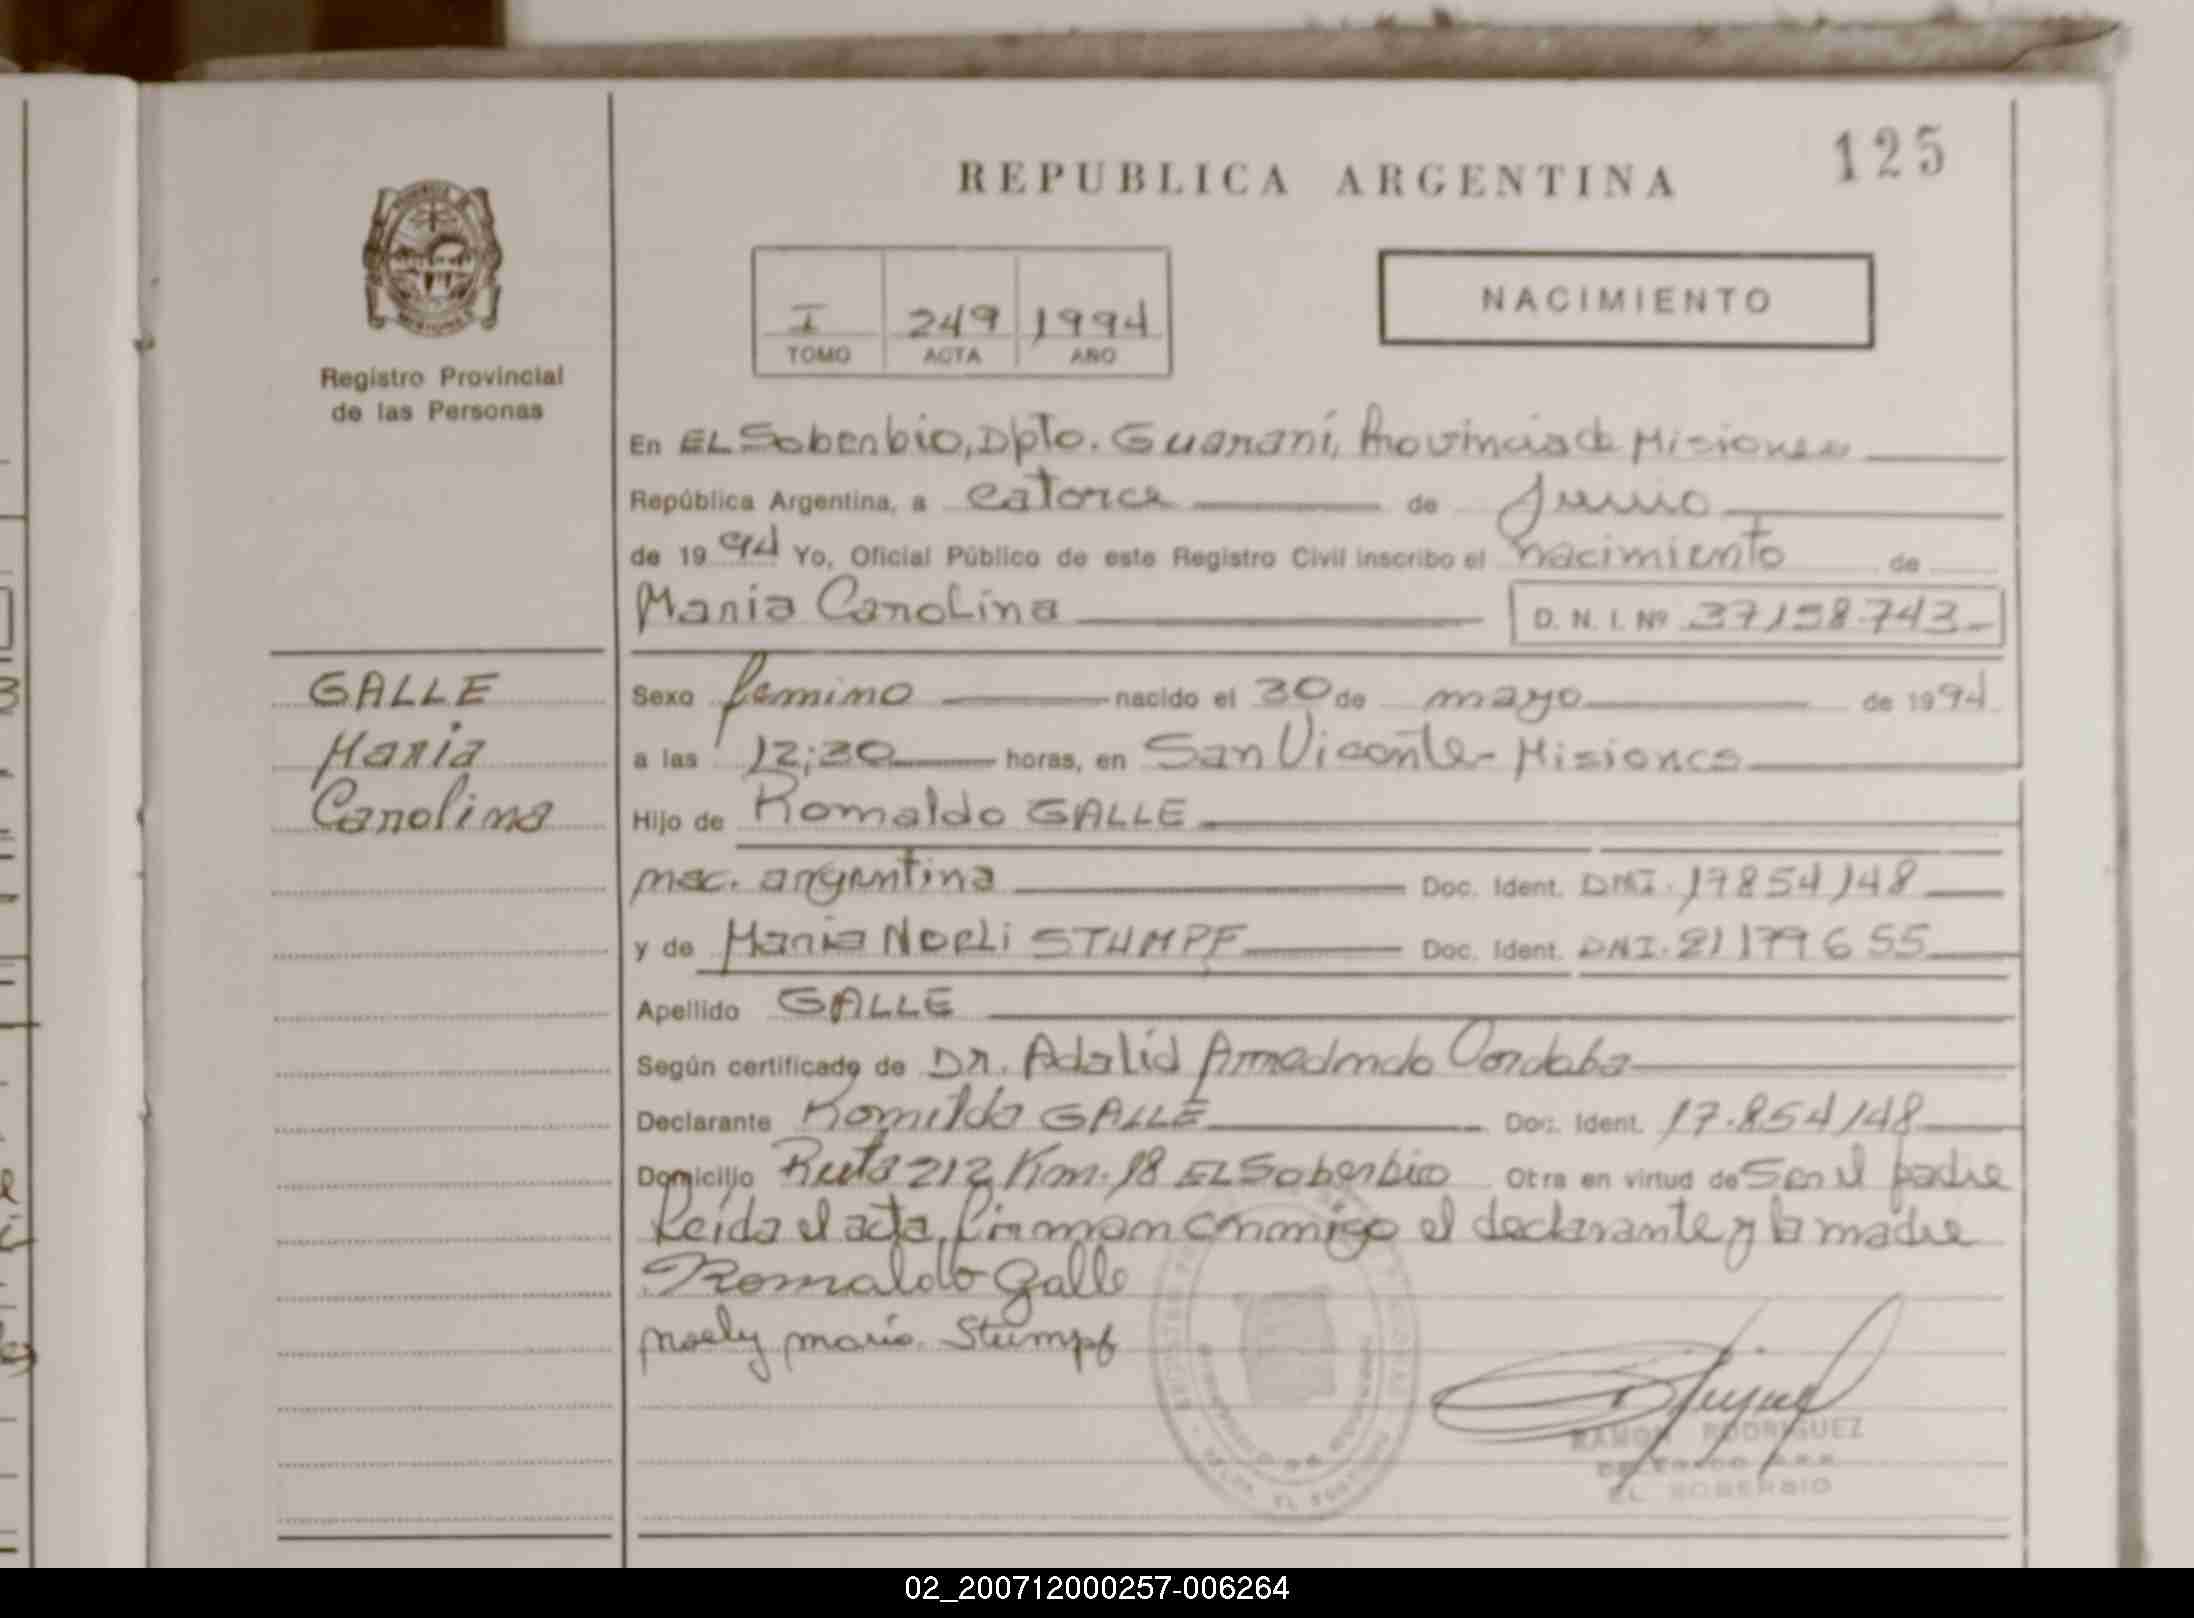 125
REPUBLICA ARGENTINA
NACIMIENTO
I 249 1994
TOMO ACTA AÑO
Registro Provincial
de las Personas
En EL Soberbio, Dpto. Guaraní, Provincia de Misiones
República Argentina, a catorce de Junio
de 19 94 Yo, Oficial Público de este Registro Civil inscribo el nacimiento de
Maria Carolina D. N. I. Nº 37158.743
GALLE
Maria
Carolina
Sexo femino nacido el 30 de mayo de 1994
a las 12:30 horas, en San Vicente - Misiones
Hijo de Romaldo GALLE
nac. argentina Doc. Ident. DNI. 17854148
y de Maria Noeli STUMPF Doc. Ident. DNI. 21179655
Apellido GALLE
Según certificado de Dr. Adalid Cordoba
Declarante Romildo GALLE Doc. Ident. 17.854148
Domicilio Ruta 212 Km. 18 EL Soberbio Otra en virtud de Ser el padre
Leída el acta, firman conmigo el declarante y la madre
Romaldo Galle
noely maria. Stumpf
RAMON RODRIGUEZ
EL SOBERBIO
02_200712000257-006264